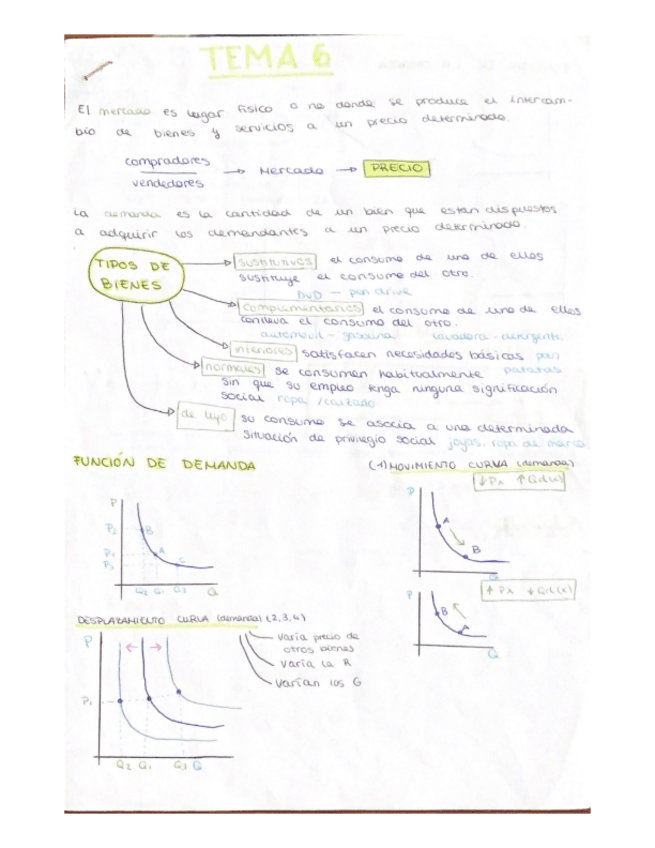 TEMA 6
El mercado es lugar físico o no donde se produce el intercam-
bio de bienes y servicios a un precio determinado.
compradores
vendedores
→ Mercado → PRECIO
La demanda es la cantidad de un bien que están dispuestos
a adquirir los demandantes a un precio determinado.
TIPOS DE
BIENES
sustitutivos el consumo de uno de ellos
sustituye el consumo del otro.
DVD - pen drive
complementarios el consumo de uno de ellos
conlleva el consumo del otro.
automóvil - gasolina lavadora - detergente
inferiores satisfacen necesidades básicas pan
patatas
normales se consumen habitualmente
sin que su empleo tenga ninguna significación
social ropa / calzado
de lujo su consumo se asocia a una determinada
situación de privilegio social joyas, ropa de marca
FUNCIÓN DE DEMANDA
P
P2 B
P1 A
P3 C
Q2 Q1 Q3 Q
(1) MOVIMIENTO CURVA (demanda)
↓Px ↑Qd(x)
P
A
B
Q
↑Px ↓Qd(x)
P
B
A
Q
DESPLAZAMIENTO CURVA (demanda) (2,3,4)
varía precio de
otros bienes
varía la R
varían los G
P
P1
Q2 Q1 Q3 Q